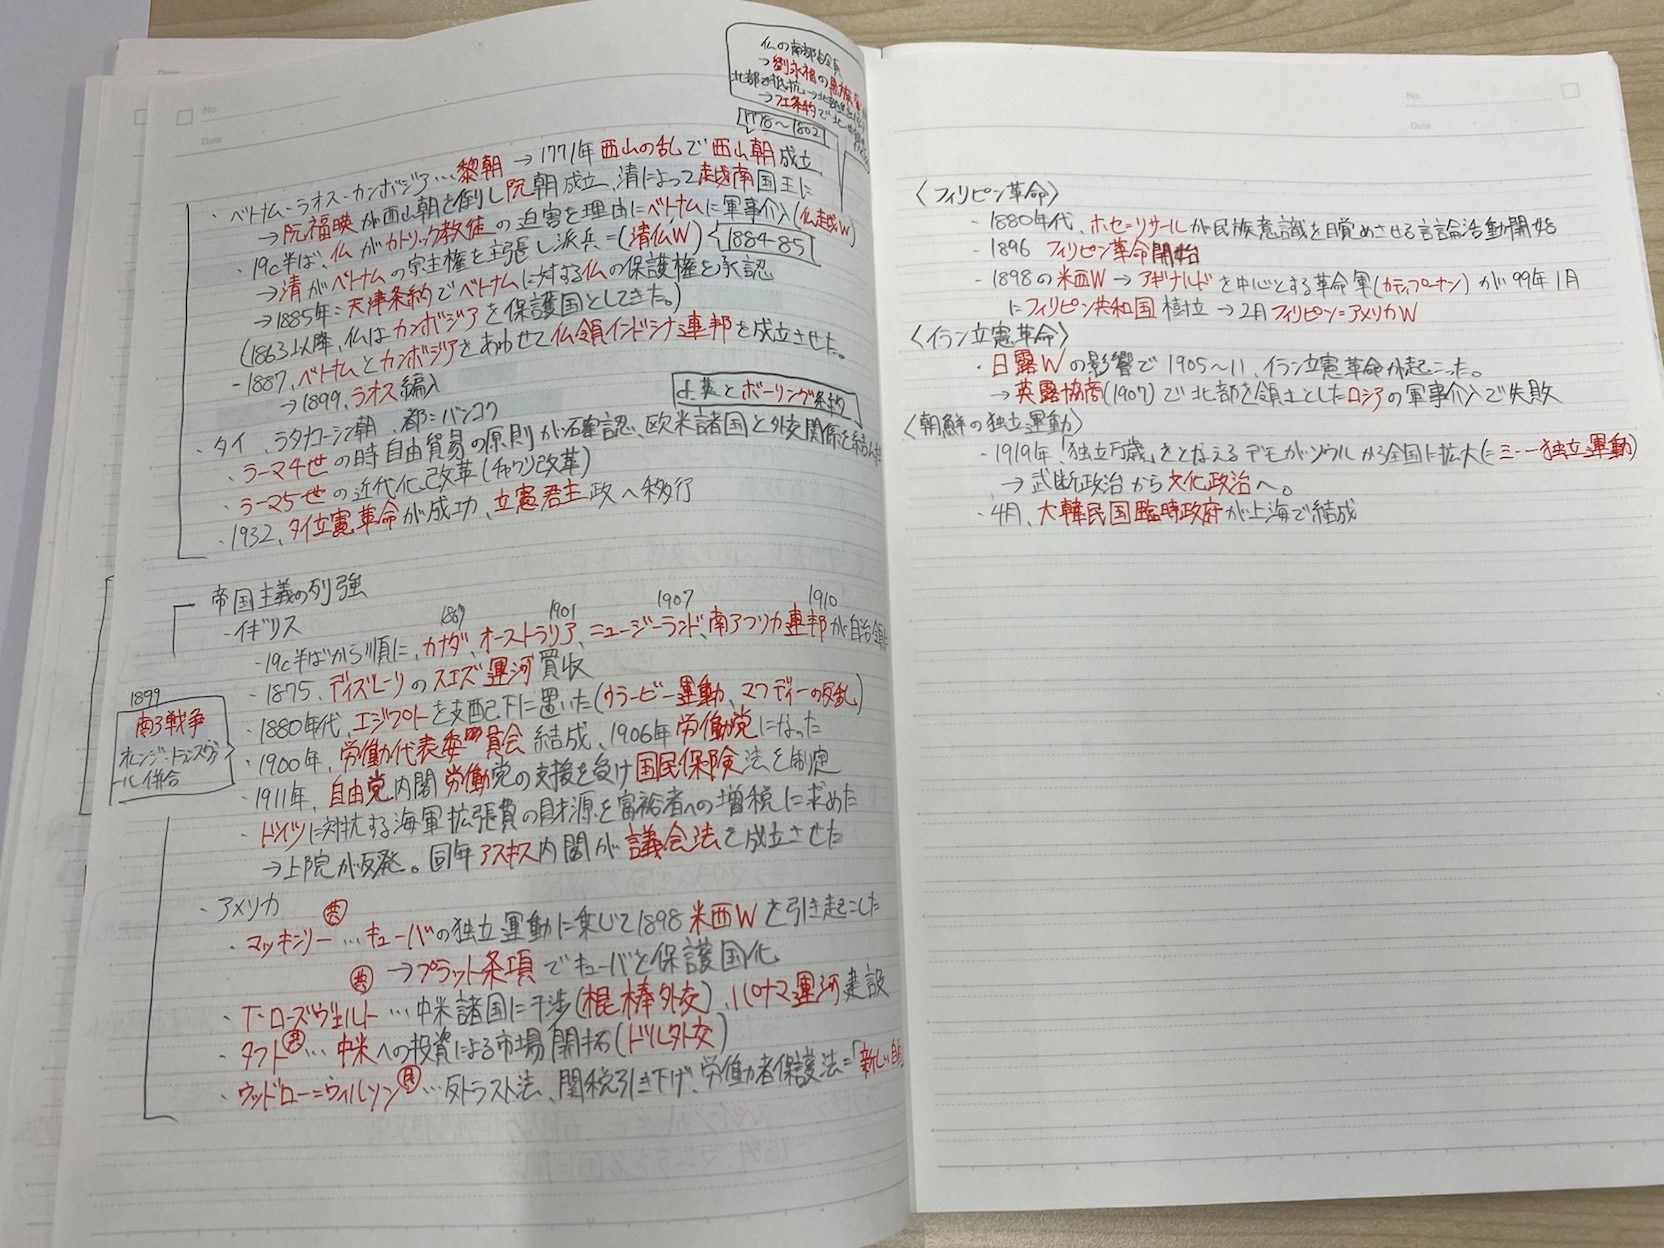 No.
Date
仏の南部占領
→劉永福の黒旗軍
北部で抵抗→北部
→フエ条約で北
1778～1802
・ベトナム・ラオス・カンボジア…黎朝→1771年西山の乱で西山朝成立
→阮福暎が西山朝を倒し阮朝成立、清によって越南国王に
・19c半ば、仏がカトリック教徒の迫害を理由にベトナムに軍事介入(仏越W)
→清がベトナムの宗主権を主張し派兵=(清仏W) 1884-85
→1885年:天津条約でベトナムに対する仏の保護権を承認
(1863以降、仏はカンボジアを保護国としてきた。)
-1887、ベトナムとカンボジアをあわせて仏領インドシナ連邦を成立させた。
→1899、ラオス編入
d.英とボーリング条約
・タイ、ラタナコーシン朝、都:バンコク
・ラーマ4世の時自由貿易の原則が確認、欧米諸国と外交関係を結んだ
・ラーマ5世の近代化改革(チャクリ改革)
・1932、タイ立憲革命が成功、立憲君主政へ移行
帝国主義の列強
・イギリス
1867 1901 1907 1910
-19c半ばから順に、カナダ、オーストラリア、ニュージーランド、南アフリカ連邦が自治領に
-1875、ディズレーリのスエズ運河買収
-1880年代、エジプトを支配下に置いた(ウラービー運動、マフディーの反乱)
1899
南ア戦争
オレンジ・トランスヴァ
ール併合
・1900年、労働代表委員会結成、1906年労働党になった
・1911年、自由党内閣労働党の支援を受け国民保険法を制定
・ドイツに対抗する海軍拡張費の財源を富裕者への増税に求めた
→上院が反発。同年アスキス内閣が議会法を成立させた
・アメリカ
・マッキンリー共…キューバの独立運動に乗じて1898米西Wを引き起こした
→プラット条項でキューバを保護国化
・T・ローズヴェルト共…中米諸国に干渉(棍棒外交)、パナマ運河建設
・タフト共…中米への投資による市場開拓(ドル外交)
・ウッドロー=ウィルソン民…反トラスト法、関税引き下げ、労働者保護法=「新しい自
No.
Date
〈フィリピン革命〉
-1880年代、ホセ=リサールが民族意識を目覚めさせる言論活動開始
-1896 フィリピン革命開始
-1898の米西W→アギナルドを中心とする革命軍(カティプーナン)が99年1月
にフィリピン共和国樹立→2月フィリピン=アメリカW
〈イラン立憲革命〉
・日露Wの影響で1905～11、イラン立憲革命が起こった。
→英露協商(1907)で北部を領土としたロシアの軍事介入で失敗
〈朝鮮の独立運動〉
-1919年「独立万歳」をとなえるデモがソウルから全国に拡大(=三・一独立運動)
→武断政治から文化政治へ。
・4月、大韓民国臨時政府が上海で結成